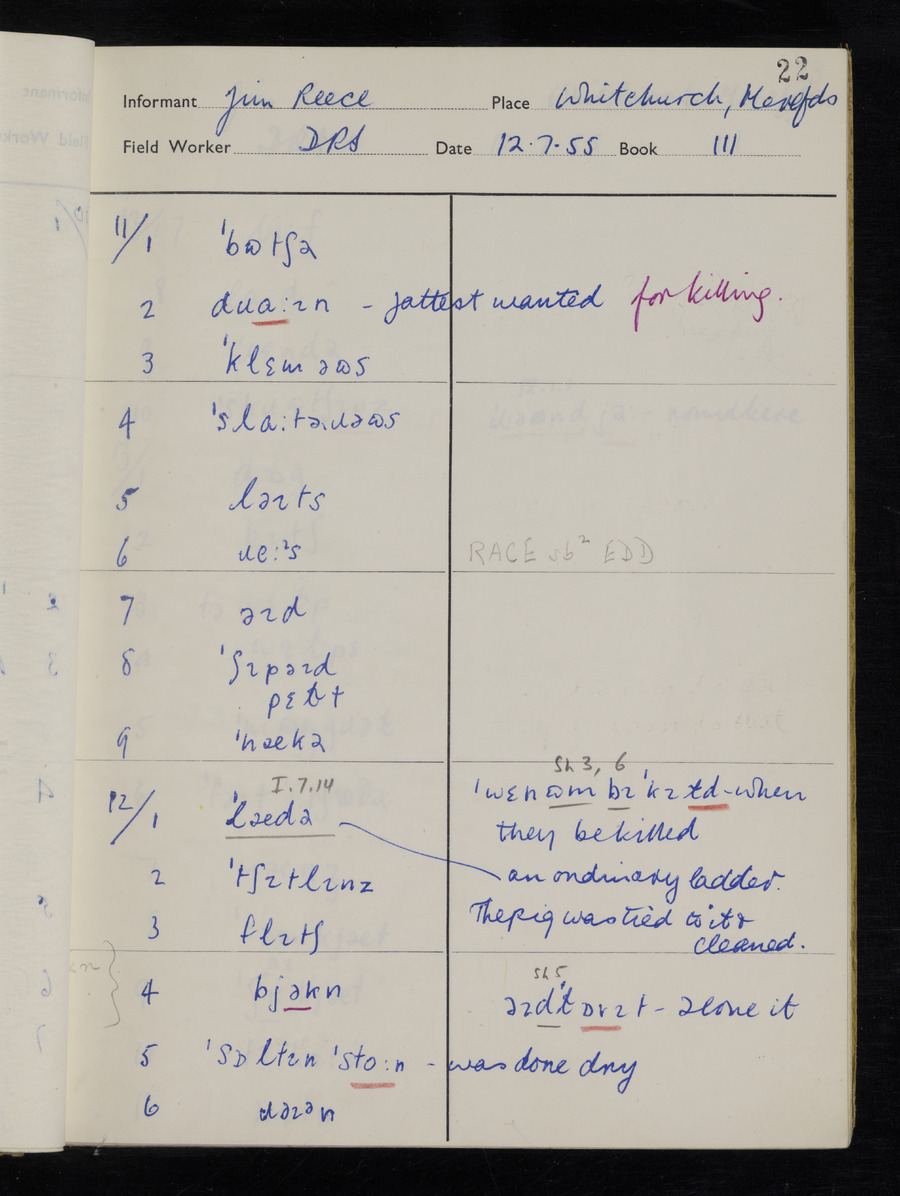 22
Informant Jim Reece Place Whitchurch, Herefds
Field Worker DRS Date 12.7.55 Book III
11/1 ˈbʊtʃə
2 dɹɑ:ɪn – fattest wanted for killing.
3 ˈklɛməʊs
4 ˈslɑ:təɹəʊs
5 ləɪts
6 ɹe:ᶦs RACE sb² EDD
7 əɪd
8 ˈʃɪpəɪd
pɛlt
9 ˈnækə
Sh 3, 6
12/1 I.7.14 ˈlædə ˈwɛn ʊm bɪˈkɪld – when
they be killed
2 ˈtʃɪtlɪnz – an ordinary ladder.
3 flɪtʃ The pig was tied to it &
cleaned.
Sh 5
4 bjəkn
5 ˈsɒltɪn ˈstɒ:n – was done dry
6 ɹəɪən